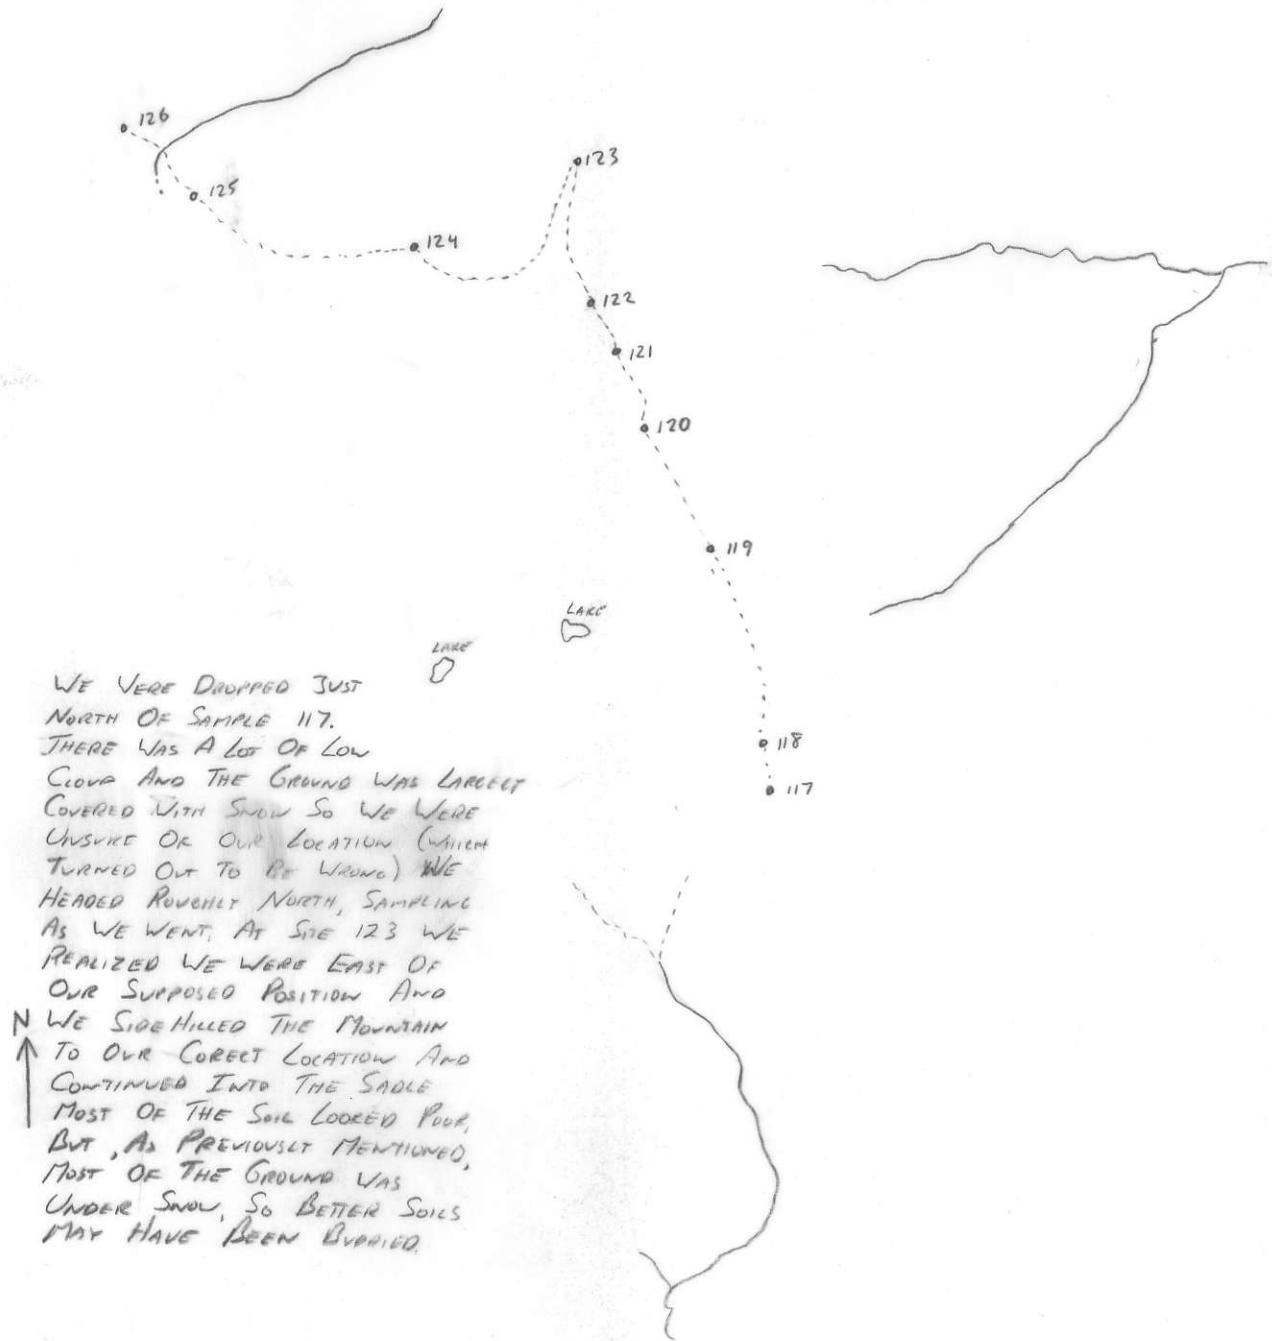 126
123
125
124
122
121
120
119
LAKE
LAKE
118
117
WE WERE DROPPED JUST
NORTH OF SAMPLE 117.
THERE WAS A LOT OF LOW
CLOUD AND THE GROUND WAS LARGELY
COVERED WITH SNOW SO WE WERE
UNSURE OF OUR LOCATION (WHICH
TURNED OUT TO BE WRONG) WE
HEADED ROUGHLY NORTH, SAMPLING
AS WE WENT. AT SITE 123 WE
REALIZED WE WERE EAST OF
OUR SUPPOSED POSITION AND
WE SIDE HILLED THE MOUNTAIN
TO OUR CORECT LOCATION AND
CONTINUED INTO THE SADLE
MOST OF THE SOIL LOOKED POOR,
BUT, AS PREVIOUSLY MENTIONED,
MOST OF THE GROUND WAS
UNDER SNOW, SO BETTER SOILS
MAY HAVE BEEN BURRIED.
N